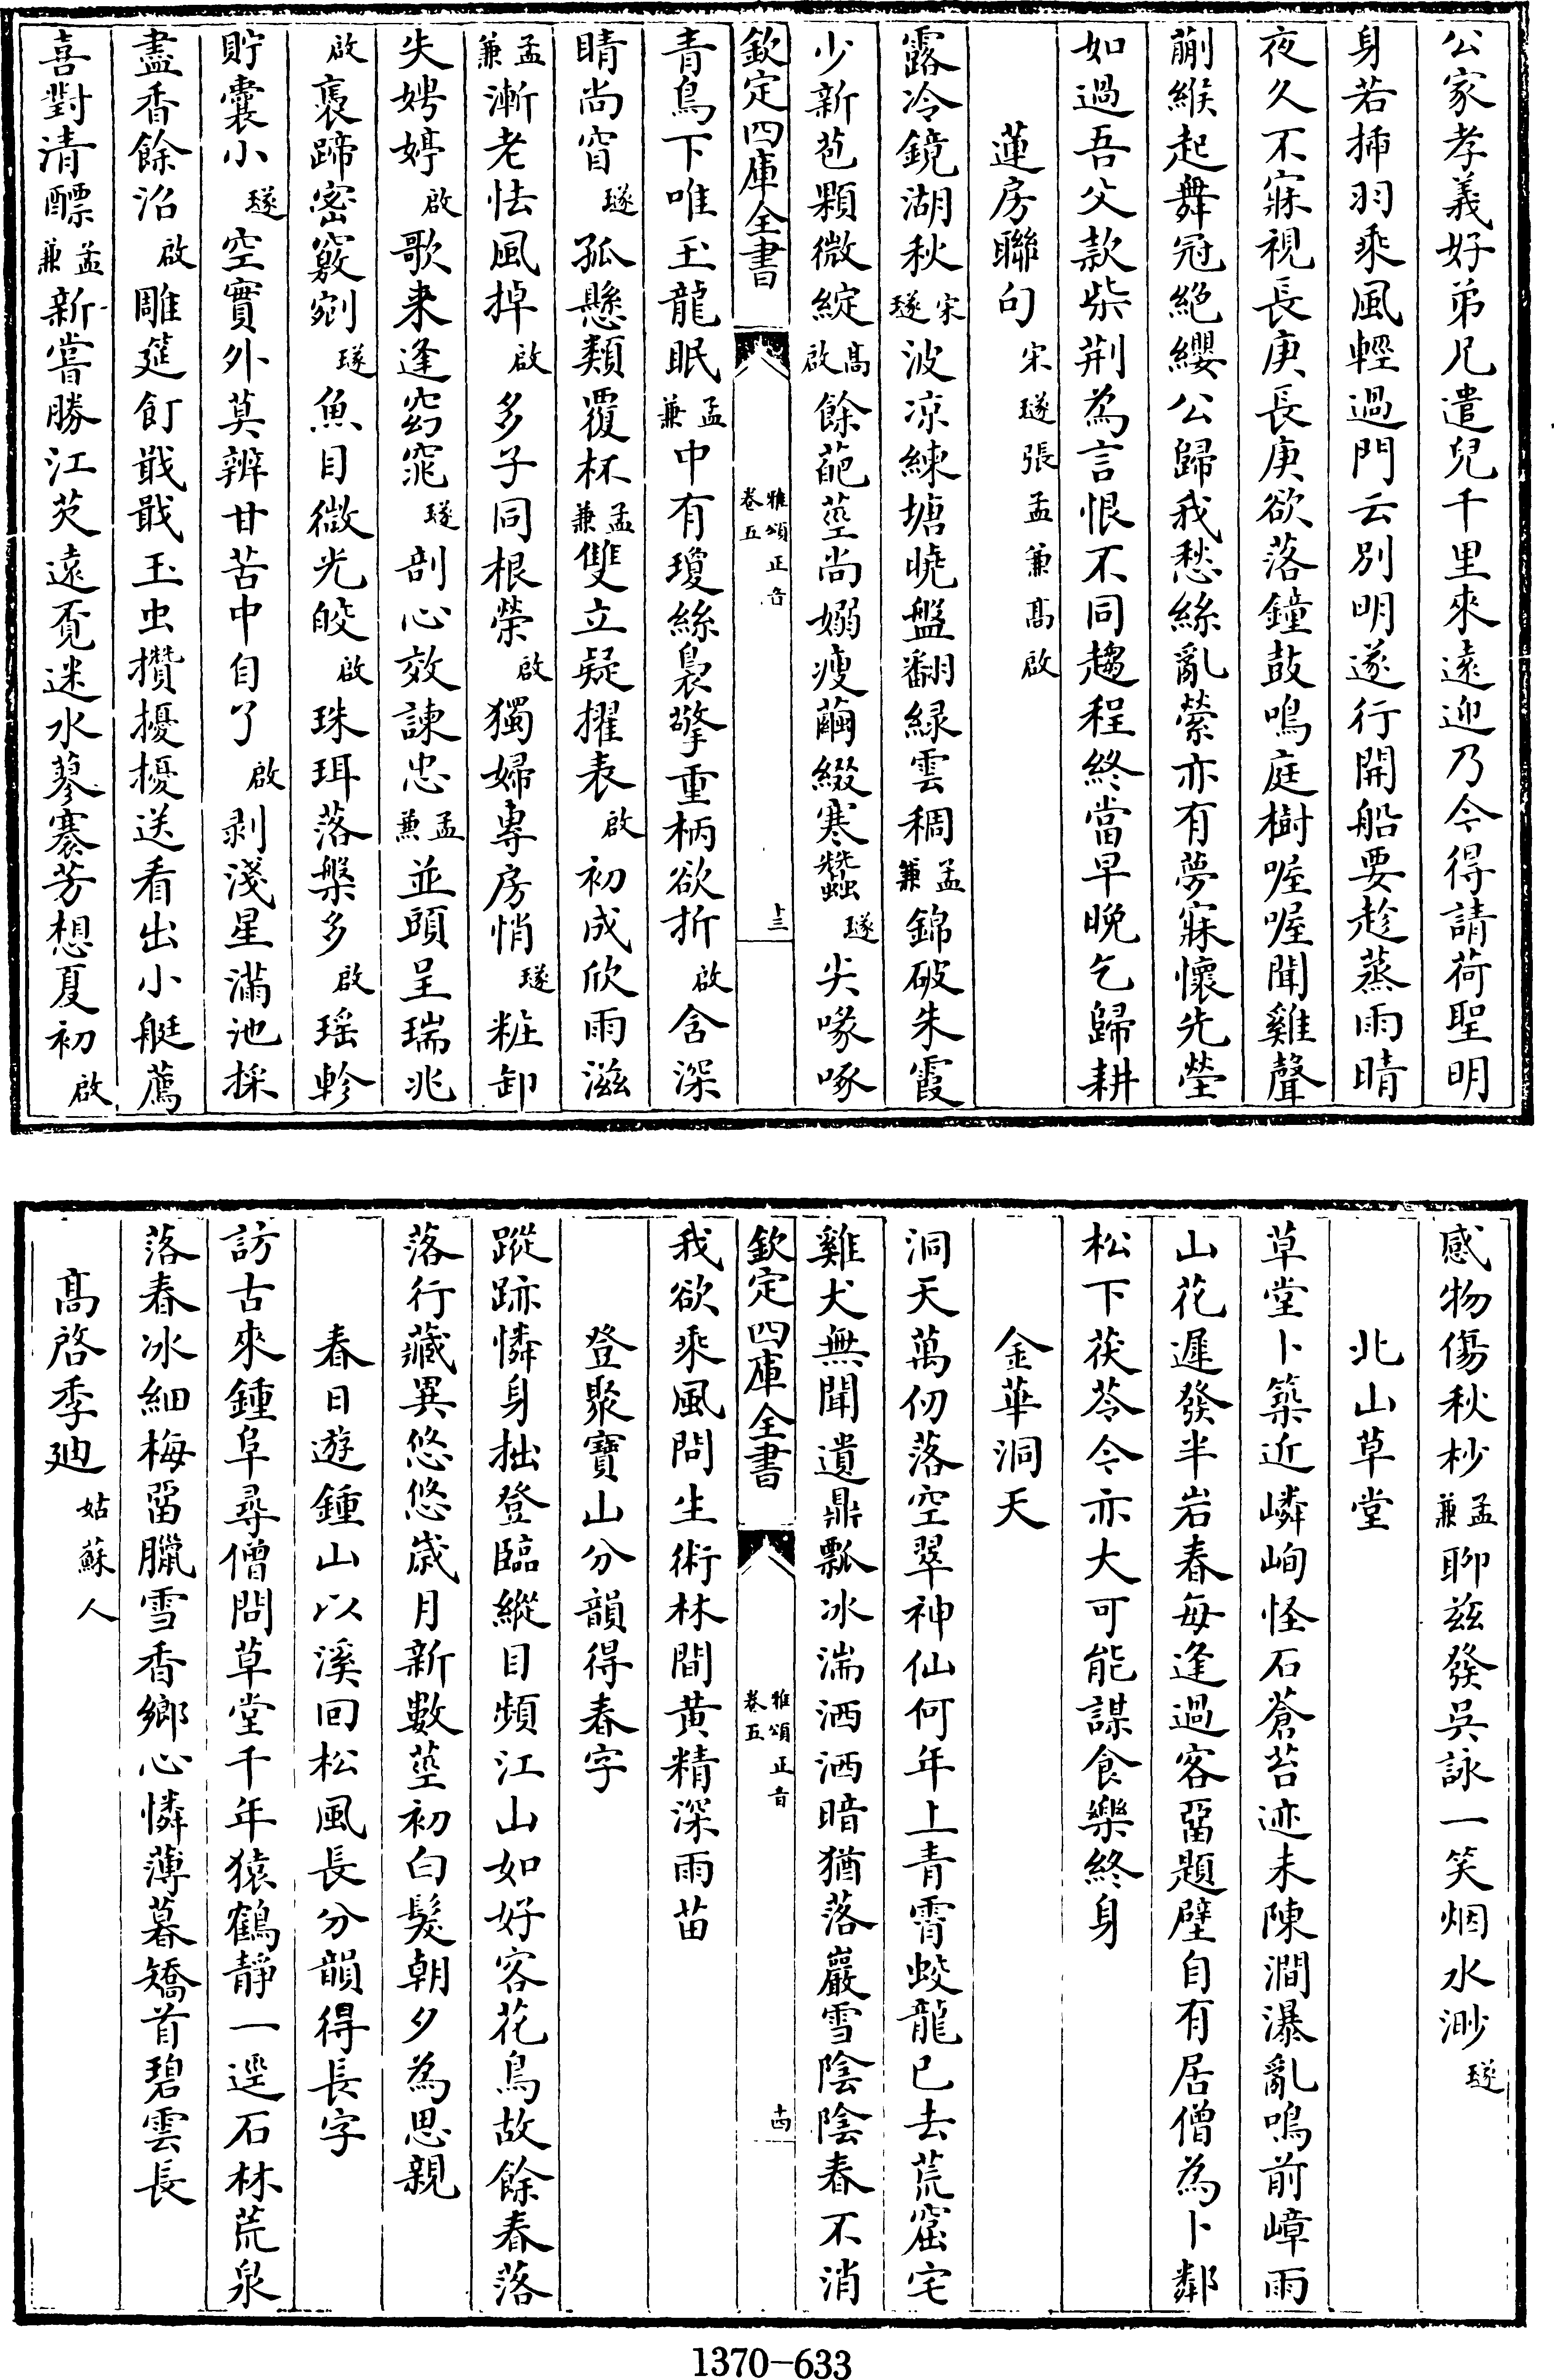 公家孝義好弟兄遣兒千里來遠迎乃今得請荷聖明
身若揷羽乘風輕過門云別明遂行開船要趁蒸雨晴
夜久不寐視長庚長庚欲落鐘鼓鳴庭樹喔喔聞雞聲
蒯緱起舞冠絶纓公歸我愁絲亂縈亦有夢寐懷先塋
如過吾父款柴荆為言恨不同趨程終當早晚乞歸耕
蓮房聯句 宋璲張孟兼髙啟
露冷鏡湖秋宋璲波凉練塘曉盤翻緑雲稠孟兼錦破朱霞
少新苞顆微綻髙啟餘葩莖尚嫋瘦繭綴寒蠶璲尖喙啄
欽定四庫全書 雅頌正音卷五 十三
青鳥下唯玉龍眠孟兼中有瓊絲裊擎重柄欲折啟含深
睛尚窅璲孤懸類覆杯孟兼雙立疑擢表啟初成欣雨滋
孟兼漸老怯風掉啟多子同根榮啟獨婦專房悄璲粧卸
失娉婷啟歌来逢窈窕璲剖心效諫忠孟兼並頭呈瑞兆
啟褭蹄密竅剜璲魚目微光皎啟珠珥落槃多啟瑶軫
貯囊小璲空實外莫辨甘苦中自了啟剥淺星滿池採
盡香餘沼啟雕筵飣戢戢玉虫攢擾擾送看出小艇薦
喜對清醥孟兼新嘗勝江芡遠覔迷水蓼褰芳想夏初啟
感物傷秋杪孟兼聊兹發吳詠一笑烟水渺璲
北山草堂
草堂卜築近嶙峋怪石蒼苔迹未陳澗瀑亂鳴前嶂雨
山花遲發半岩春每逢過客畱題壁自有居僧為卜鄰
松下茯苓今亦大可能謀食樂終身
金華洞天
洞天萬仞落空翠神仙何年上青霄蛟龍已去荒窟宅
雞犬無聞遺鼎瓢冰湍洒洒暗猶落巖雪陰陰春不消
欽定四庫全書 雅頌正音卷五 十四
我欲乘風問生術林間黄精深雨苗
登聚寶山分韻得春字
蹤跡憐身拙登臨縱目頻江山如好客花鳥故餘春落
落行藏異悠悠歲月新數莖初白髮朝夕為思親
春日遊鍾山以溪回松風長分韻得長字
訪古來鍾阜尋僧問草堂千年猿鶴静一逕石林荒泉
落春冰細梅畱臘雪香鄉心憐薄暮矯首碧雲長
髙啓季廸 姑蘇人
1370-633